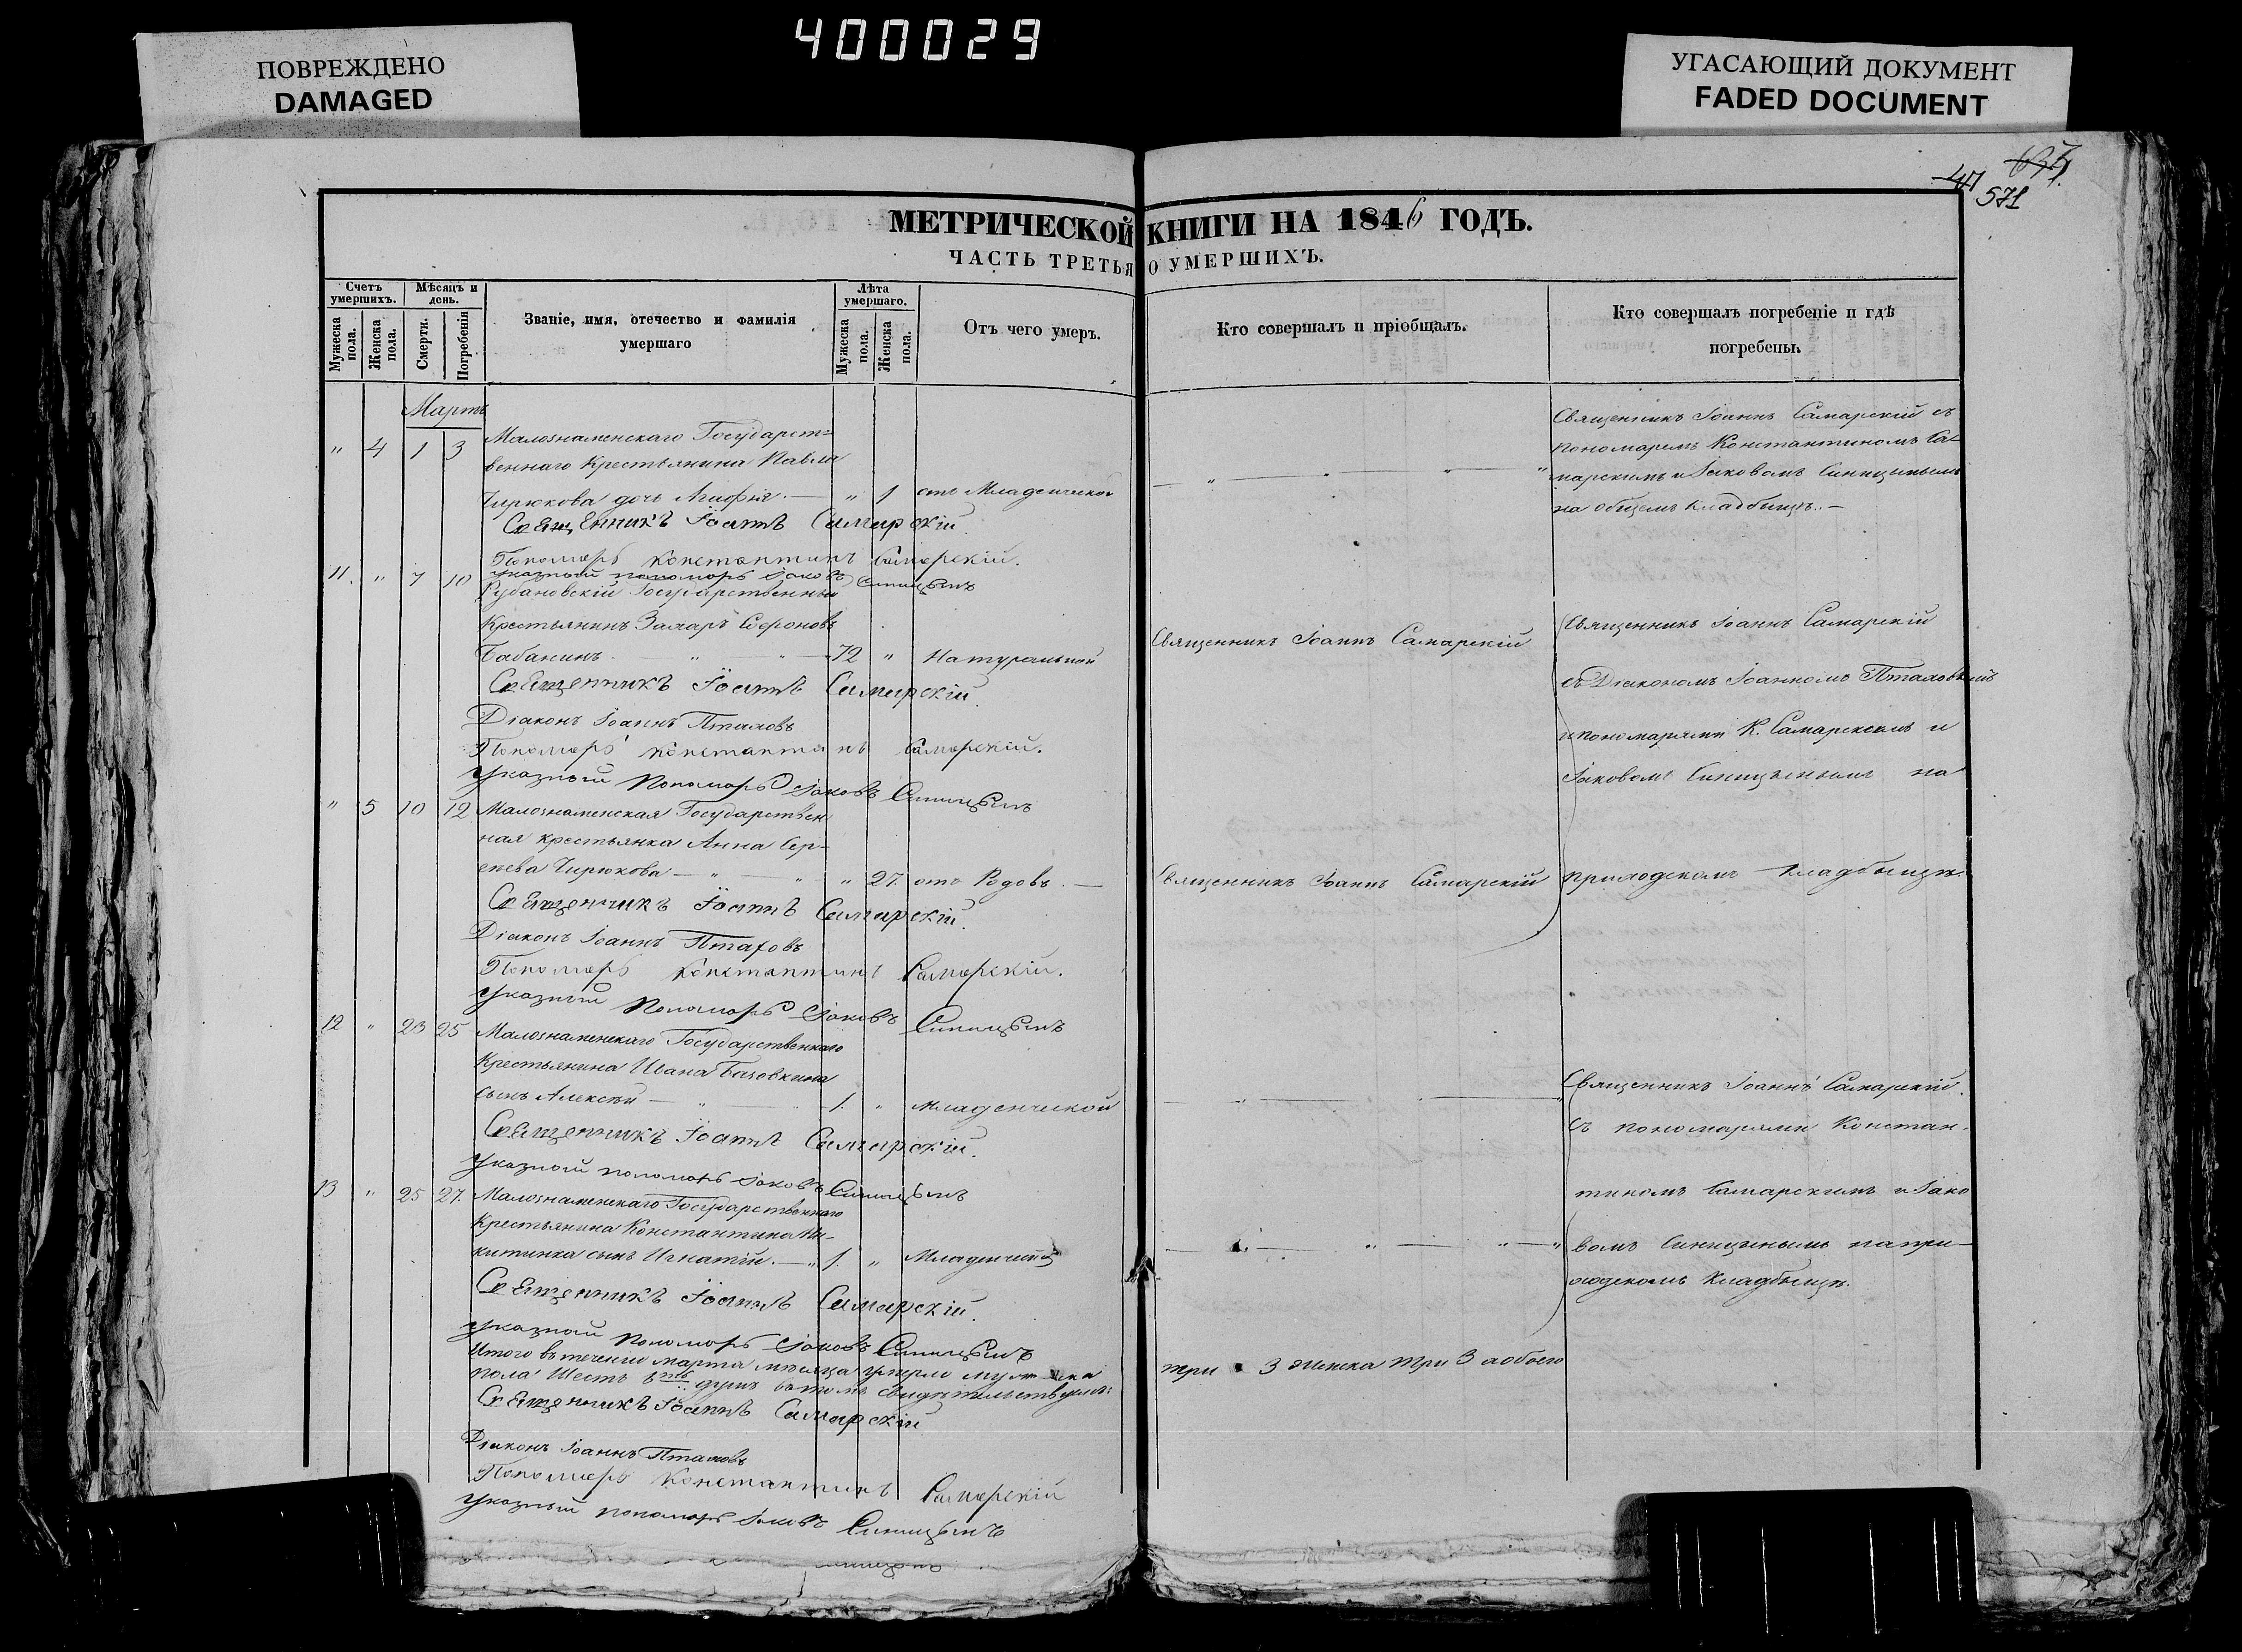 400029
ПОВРЕЖДЕНО
DAMAGED
УГАСАЮЩИЙ ДОКУМЕНТ
FADED DOCUMENT
571
МЕТРИЧЕСКОЙ КНИГИ НА 1846 ГОДЪ.
ЧАСТЬ ТРЕТЬЯ О УМЕРШИХЪ.
Счетъ умершихъ.
Мѣсяцъ и день.
Званіе, имя, отечество и фамилія умершаго
Лѣта умершаго.
Отъ чего умеръ.
Кто совершалъ и пріобщалъ.
Кто совершалъ погребеніе и гдѣ погребены.
Мужеска пола.
Женска пола.
Смерти.
Погребенія
Мужеска пола.
Женска пола.
Мартъ
" 4 1 3 Малознаменскаго Государст=
веннаго Крестьянина Павла
Чирюкова дочь Агафія. — " 1 отъ Младенческой
Священникъ Іоаннъ Самарскій.
Пономарь Константинъ Самарскій.
указный пономарь Іаковъ Синицынъ
Священникъ Іоаннъ Самарскій съ
пономаремъ Константиномъ Са-
марскимъ и Іаковомъ Синицынымъ
на общемъ кладбищѣ. —
11. " 7 10 Рубановскій Государственный
Крестьянинъ Захаръ Софоновъ
Бабанинъ 72 " Натуральной
Священникъ Іоаннъ Самарскій
Священникъ Іоаннъ Самарскій.
Діаконъ Іоаннъ Птаховъ
Пономарь Константинъ Самарскій.
Указный Пономарь Іаковъ Синицынъ
Священникъ Іоаннъ Самарскій
съ Діакономъ Іоанномъ Птаховымъ
и пономарями К. Самарскимъ и
Іаковомъ Синицынымъ на
приходскомъ кладбищѣ
" 5 10 12 Малознаменская Государствен
ная крестьянка Анна Сер-
геева Чирюкова — " " 27. отъ Родовъ. —
Священникъ Іоаннъ Самарскій
Священникъ Іоаннъ Самарскій.
Діаконъ Іоаннъ Птаховъ
Пономарь Константинъ Самарскій.
Указный Пономарь Іаковъ Синицынъ
12 " 23 25 Малознаменскаго Государственнаго
Крестьянина Ивана
сынъ Алексѣй — 1. " Младенческой
Священникъ Іоаннъ Самарскій.
Указной пономарь Іаковъ Синицынъ
13 " 25 27. Малознаменскаго Государственнаго
Крестьянина Константина Ни-
китина сынъ Игнатій. — " 1. " Младенческой
Священникъ Іоаннъ Самарскій.
Указной Пономарь Іаковъ Синицынъ
Священникъ Іоаннъ Самарскій.
съ пономарями Констан-
тиномъ Самарскимъ и Іако
вомъ Синицынымъ на при-
ходскомъ кладбищѣ.
Итого въ теченіи марта мѣсяца умерло мужеска три 3 женска три 3 а обоего
пола шесть 6ть душъ въ томъ свидѣтельствуемъ:
Священникъ Іоаннъ Самарскій
Діаконъ Іоаннъ Птаховъ
Пономарь Константинъ Самарскій
Указный пономарь Іаковъ Синицынъ